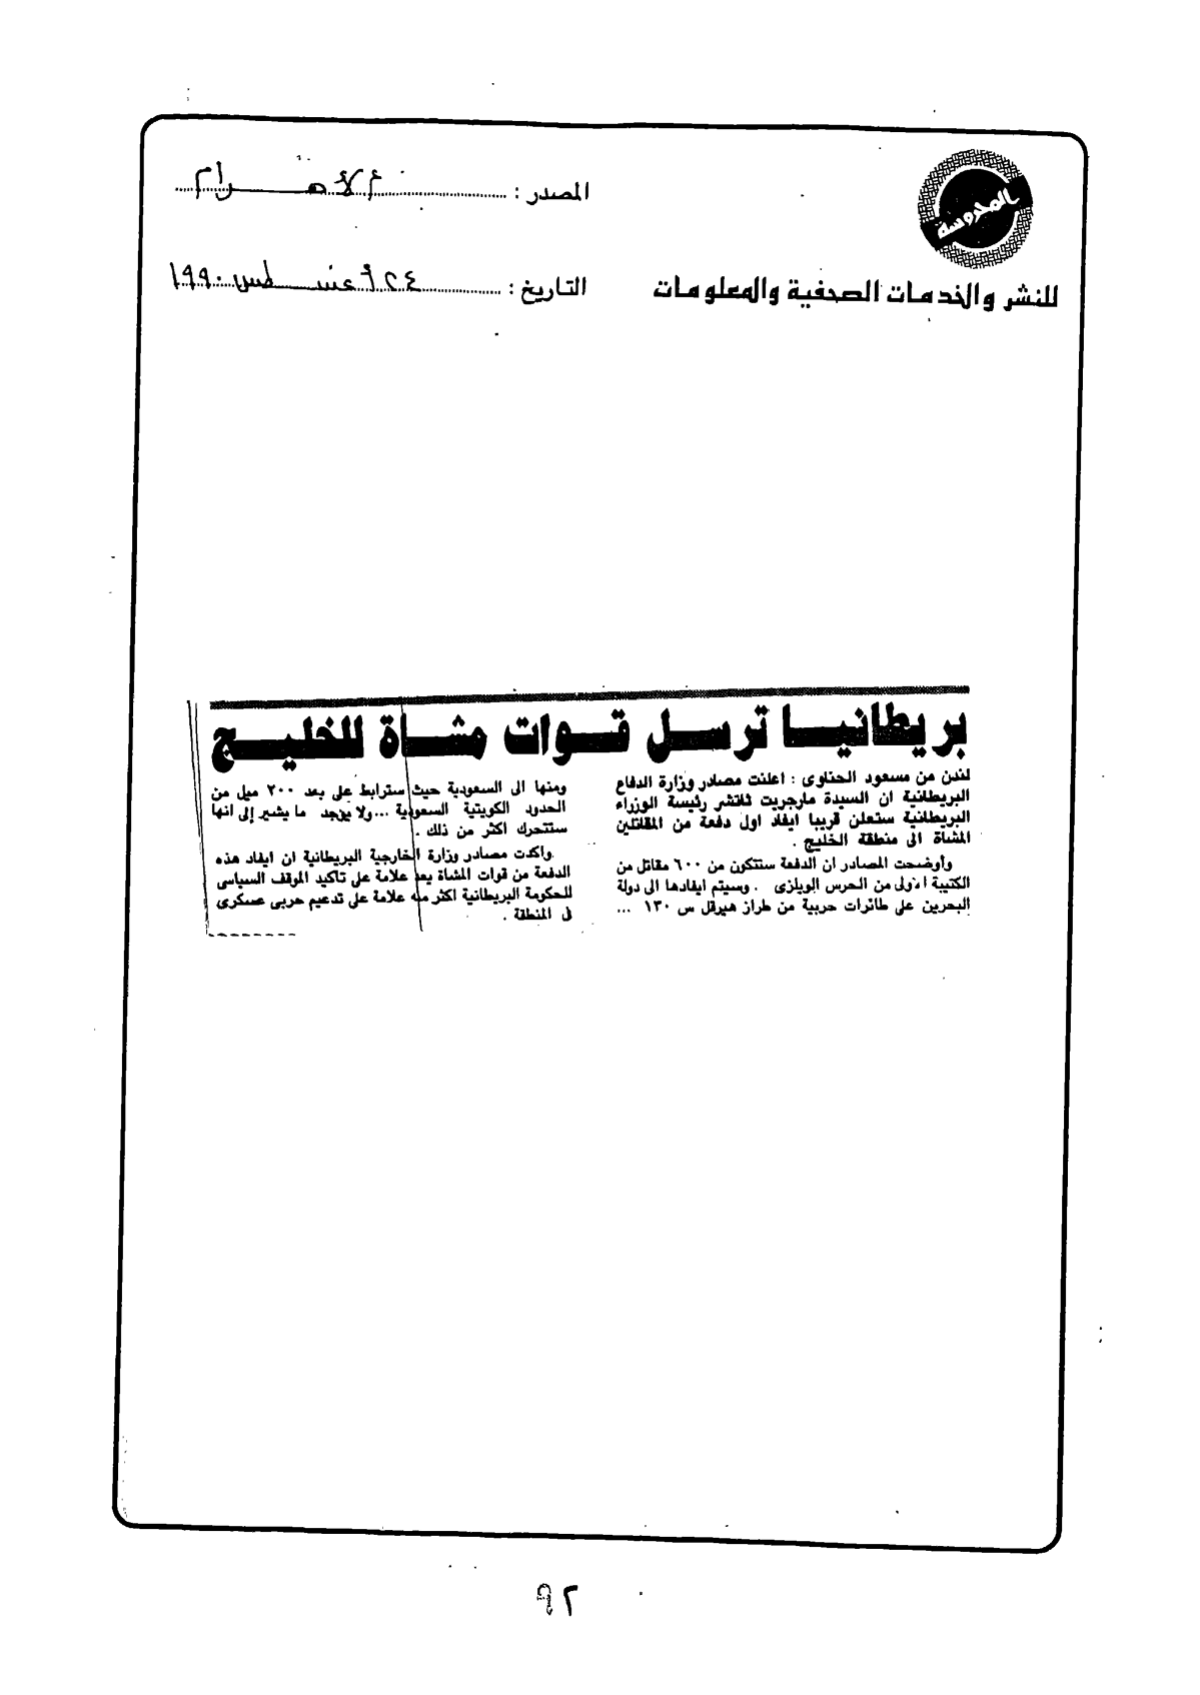 المحروسة
للنشر والخدمات الصحفية والمعلومات
المصدر : الأهرام
التاريخ : ٢٤ أغسطس ١٩٩٠
بريطانيا ترسل قوات مشاة للخليج
لندن من مسعود الحناوى : اعلنت مصادر وزارة الدفاع
البريطانية ان السيدة مارجريت ثاتشر رئيسة الوزراء
البريطانية ستعلن قريبا ايفاد اول دفعة من المقاتلين
المشاة الى منطقة الخليج .
وأوضحت المصادر ان الدفعة ستتكون من ٦٠٠ مقاتل من
الكتيبة الأولى من الحرس الويلزى . وسيتم ايفادها الى دولة
البحرين على طائرات حربية من طراز هيرقل س ١٣٠ ...
ومنها الى السعودية حيث سترابط على بعد ٢٠٠ ميل من
الحدود الكويتية السعودية ... ولا يوجد ما يشير إلى انها
ستتحرك اكثر من ذلك .
واكدت مصادر وزارة الخارجية البريطانية ان ايفاد هذه
الدفعة من قوات المشاة يعد علامة على تاكيد الموقف السياسى
للحكومة البريطانية اكثر منه علامة على تدعيم حربى عسكرى
فى المنطقة .
٩٢